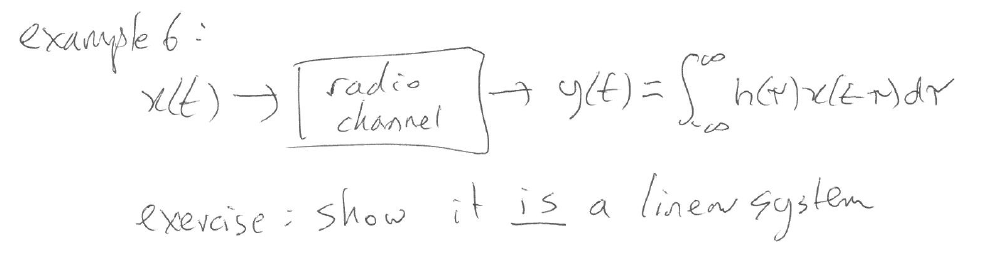 example 6:
x(t) → radio channel → y(t) = ∫_{-∞}^{∞} h(τ)x(t-τ)dτ
exercise: show it is a linear system